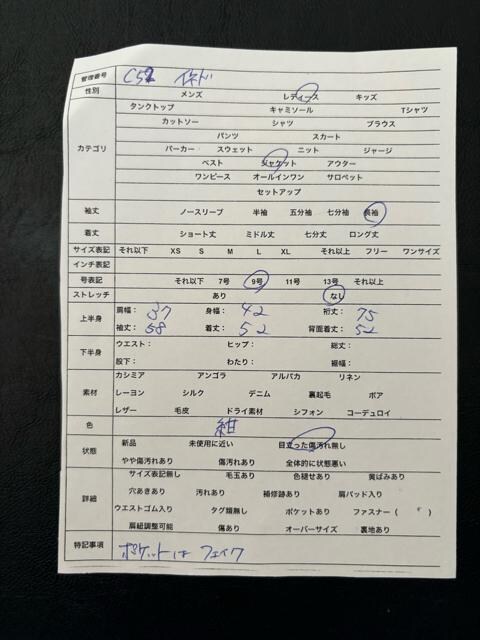 管理番号 C52 イネド
性別 メンズ レディース キッズ
タンクトップ キャミソール Tシャツ
カットソー シャツ ブラウス
パンツ スカート
カテゴリ パーカー スウェット ニット ジャージ
ベスト ジャケット アウター
ワンピース オールインワン サロペット
セットアップ
袖丈 ノースリーブ 半袖 五分袖 七分袖 長袖
着丈 ショート丈 ミドル丈 七分丈 ロング丈
サイズ表記 それ以下 XS S M L XL それ以上 フリー ワンサイズ
インチ表記
号表記 それ以下 7号 9号 11号 13号 それ以上
ストレッチ あり なし
上半身 肩幅: 37 身幅: 42 裄丈: 75
袖丈: 58 着丈: 52 背面着丈: 52
下半身 ウエスト: ヒップ: 総丈:
股下: わたり: 裾幅:
カシミア アンゴラ アルパカ リネン
素材 レーヨン シルク デニム 裏起毛 ボア
レザー 毛皮 ドライ素材 シフォン コーデュロイ
色 紺
状態 新品 未使用に近い 目立った傷汚れ無し
やや傷汚れあり 傷汚れあり 全体的に状態悪い
サイズ表記無し 毛玉あり 色褪せあり 黄ばみあり
詳細 穴あきあり 汚れあり 補修跡あり 肩パッド入り
ウエストゴム入り タグ類無し ポケットあり ファスナー( )
肩紐調整可能 傷あり オーバーサイズ 裏地あり
特記事項 ポケットはフェイク